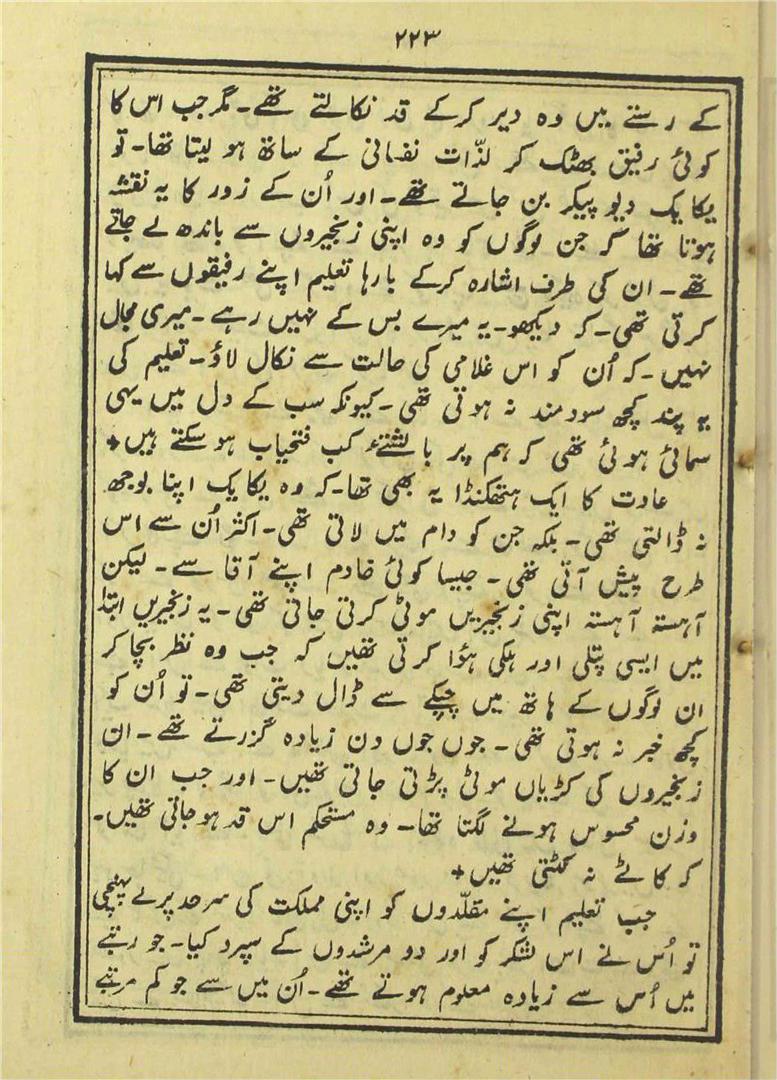 ۲۲۳
کے رستے میں وہ دیر کرکے قد نکالتے تھے۔ مگر جب اس کا
کوئی رفیق بھٹک کر لذّات نفسانی کے ساتھ ہو لیتا تھا۔ تو
یکایک دیو پیکر بن جاتے تھے۔ اور اُن کے زور کا یہ نقشہ
ہوتا تھا کہ جن لوگوں کو وہ اپنی زنجیروں سے باندھ لے جاتے
تھے۔ ان کی طرف اشارہ کرکے بارہا تعلیم اپنے رفیقوں سے کہا
کرتی تھی۔ کہ دیکھو۔ یہ میرے بس کے نہیں رہے۔ میری مجال
نہیں۔ کہ اُن کو اس غلامی کی حالت سے نکال لاؤ۔ تعلیم کی
یہ پند کچھ سودمند نہ ہوتی تھی۔ کیونکہ سب کے دل میں یہی
سمائی ہوئی تھی کہ ہم پر بالشتئے کب فتحیاب ہو سکتے ہیں+
عادت کا ایک ہتھکنڈا یہ بھی تھا۔ کہ وہ یکایک اپنا بوجھ
نہ ڈالتی تھی۔ بلکہ جن کو دام میں لاتی تھی۔ اکثر اُن سے اس
طرح پیش آتی تھی۔ جیسا کوئی خادم اپنے آقا سے۔ لیکن
آہستہ آہستہ اپنی زنجیریں موٹی کرتی جاتی تھی۔ یہ زنجیریں ابتدا
میں ایسی پتلی اور ہلکی ہؤا کرتی تھیں کہ جب وہ نظر بچا کر
ان لوگوں کے ہاتھ میں چپکے سے ڈال دیتی تھی۔ تو اُن کو
کچھ خبر نہ ہوتی تھی۔ جوں جوں دن زیادہ گزرتے تھے۔ ان
زنجیروں کی کڑیاں موٹی پڑتی جاتی تھیں۔ اور جب ان کا
وزن محسوس ہونے لگتا تھا۔ وہ مستحکم اس قدر ہو جاتی تھیں۔
کہ کاٹے نہ کٹتی تھیں+
جب تعلیم اپنے مقلّدوں کو اپنی مملکت کی سرحد پر لے پہنچی
تو اُس نے اس لشکر کو اور دو مرشدوں کے سپرد کیا۔ جو رتبے
میں اُس سے زیادہ معلوم ہوتے تھے۔ اُن میں سے جو کم مرتبے